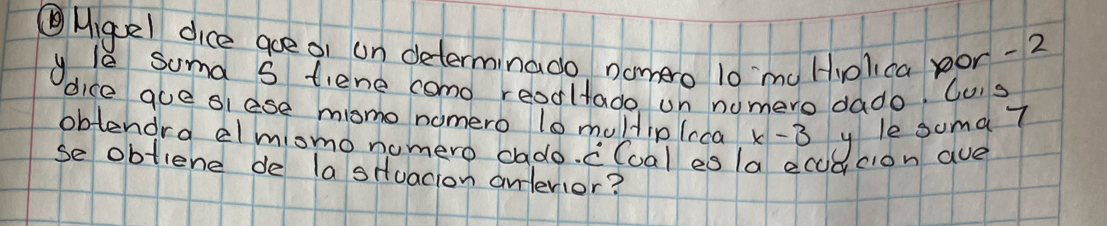 ⑩ Miguel dice que si un determinado numero lo multiplica por -2
y le suma 5 tiene como resultado un numero dado. Luis
dice que si ese mismo numero lo multiplcca x -3 y le suma 7
obtendra el mismo numero dado. ¿Cual es la ecuacion que
se obtiene de la situacion anterior?